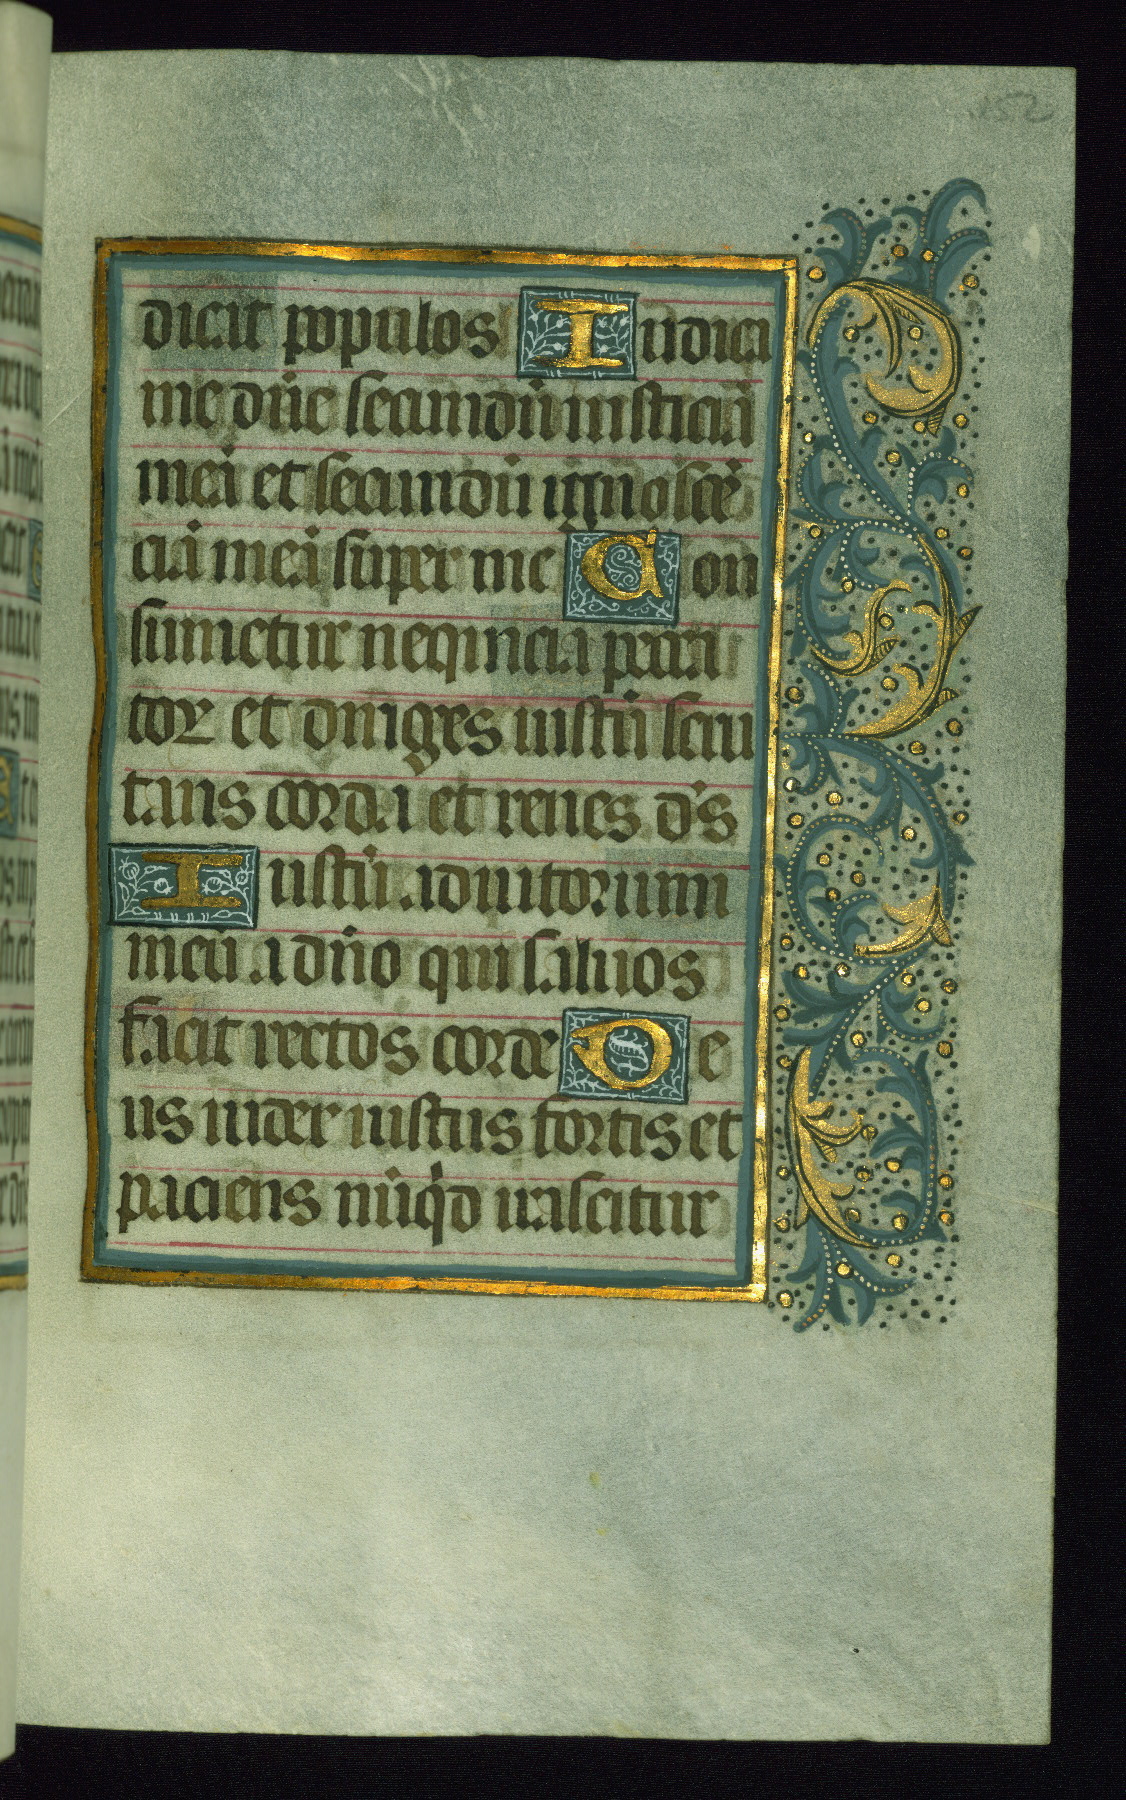 152
dicat populos Iudica
me dñe secundū iusticiā
meā et secundū ignoscē
ciā meā super me Con
sumetur neqincia peccā
toꝝ et diriges iustū scru
tans corda et renes ds̄
Iustū adiutorium
meū a dño qui saluos
facit rectos corde De
us iudex iustus fortis et
paciens nūqd irascitur